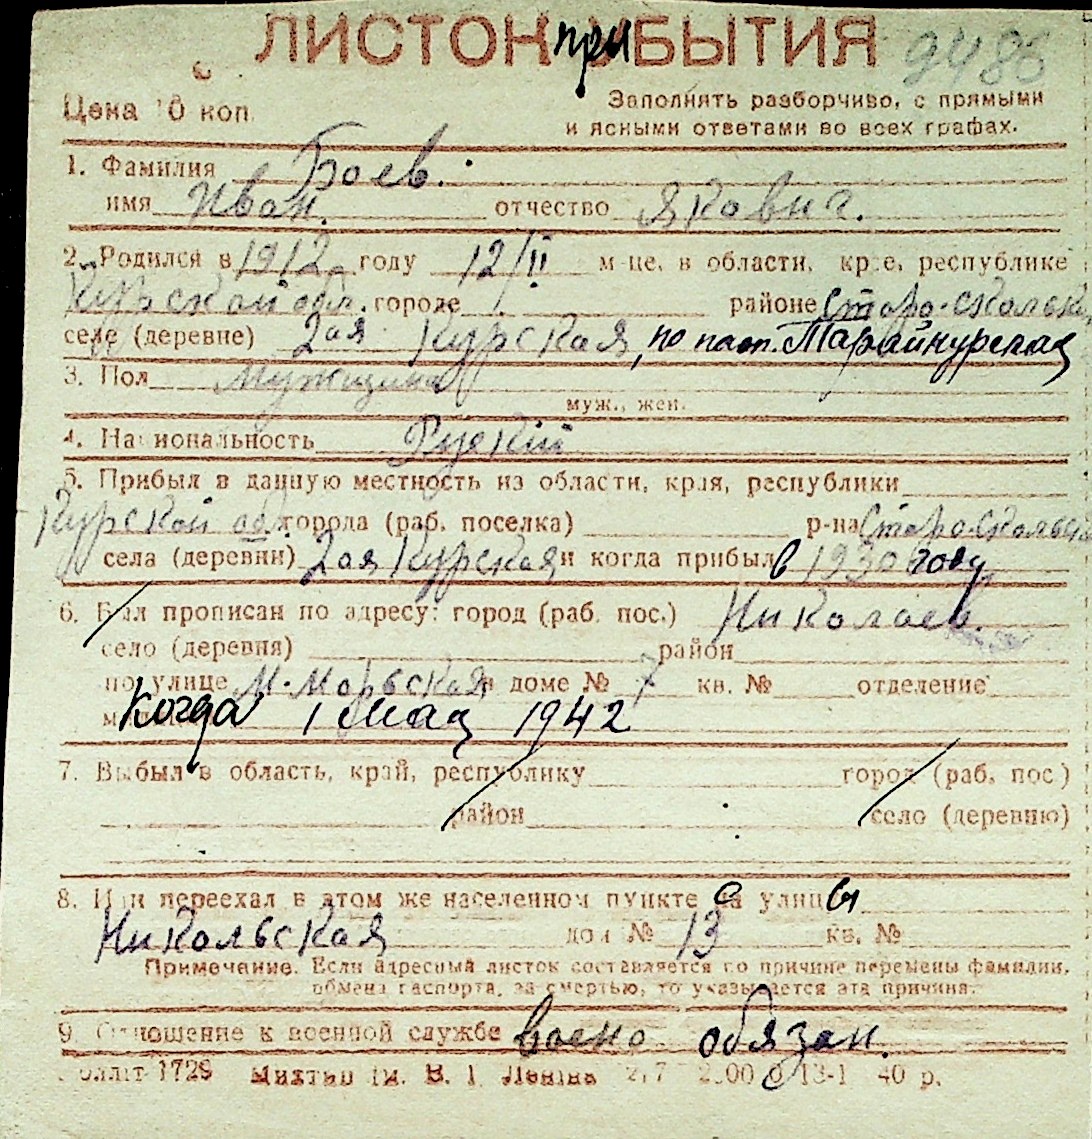 ЛИСТОК при БЫТИЯ 9486
Цена 10 коп. Заполнять разборчиво, с прямыми
и ясными ответами во всех графах.
1. Фамилия Боев.
имя Иван. отчество Якович.
2. Родился в 1912 году 12/II м-це, в области, крае, республике
Курской обл. городе районе Старо-Скольск
селе (деревне) 2ая Курская, по пасп.
3. Пол Мужщина
муж., жен.
4. Национальность Руский
5. Прибыл в данную местность из области, края, республики
Курской об. города (раб. поселка) р-на Старо-Скольск
села (деревни) 2ая Курская и когда прибыл в 1930 году
6. Был прописан по адресу: город (раб. пос.) Николаев.
село (деревня) район
по улице М-Морьская в доме № 7 кв. № отделение
когда 1 Мая 1942
7. Выбыл в область, край, республику город (раб. пос)
район село (деревню)
8. Или переехал в этом же населенном пункте с улицы
Никольская дом № 13 кв. №
Примечание. Если адресный листок составляется по причине перемены фамилии,
обмена паспорта, за смертью, то указывается эта причина.
9. Отношение к военной службе воено обязан.
1729 ім. В. І. Леніна 40 р.